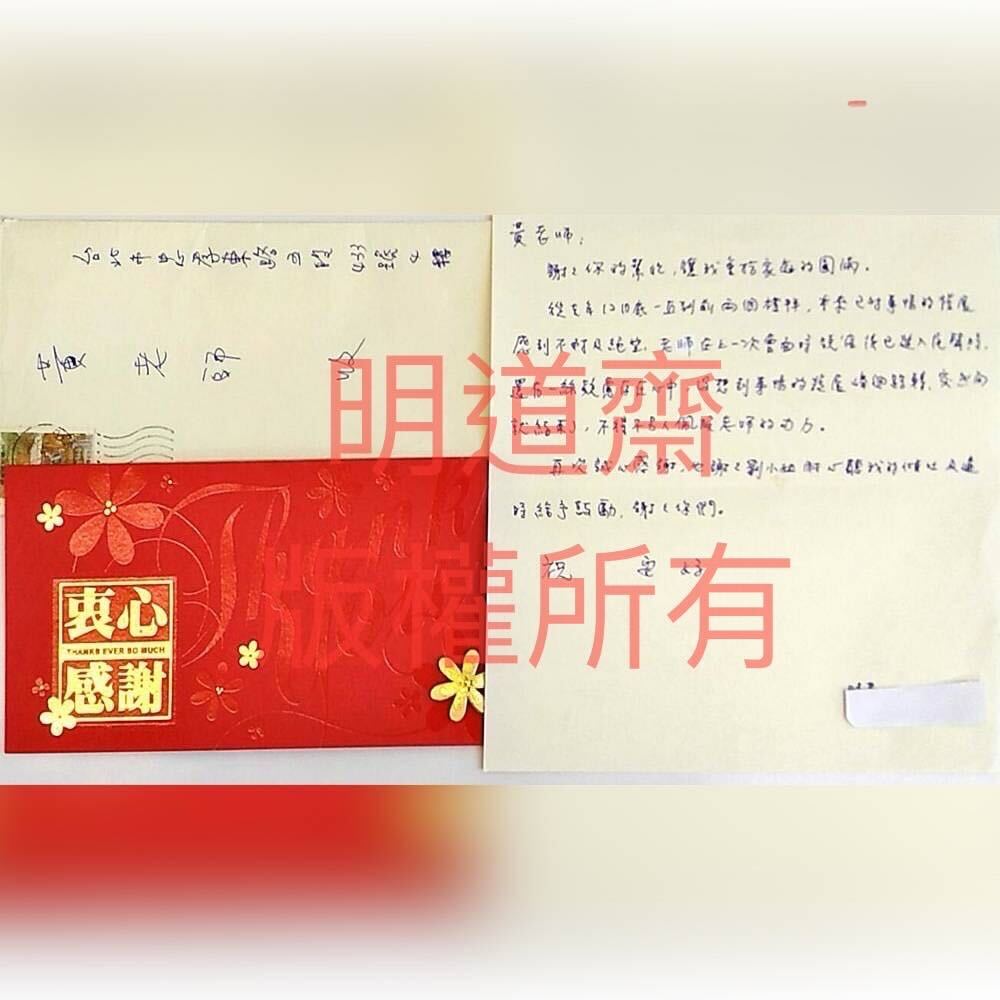 台北市忠孝東路三段433號4樓
黃老師 收
衷心
THANKS EVER SO MUCH
感謝
Thank
黃老師:
謝謝你的幫忙,讓我重拾家庭的圓滿。
從去年12月底一直到前兩個禮拜,本來已對事情的發展
感到不耐及絕望,老師在上一次會面時說過後已進入尾聲時,
還有一絲疑慮存在心中,沒想到事情的發展峰迴路轉,突然間
就結束了,不得不令人佩服老師的功力。
再次誠心感謝,也謝謝劉小姐耐心聽我的傾吐及適
時給予鼓勵,謝謝你們。
祝 安好
明道齋
版權所有